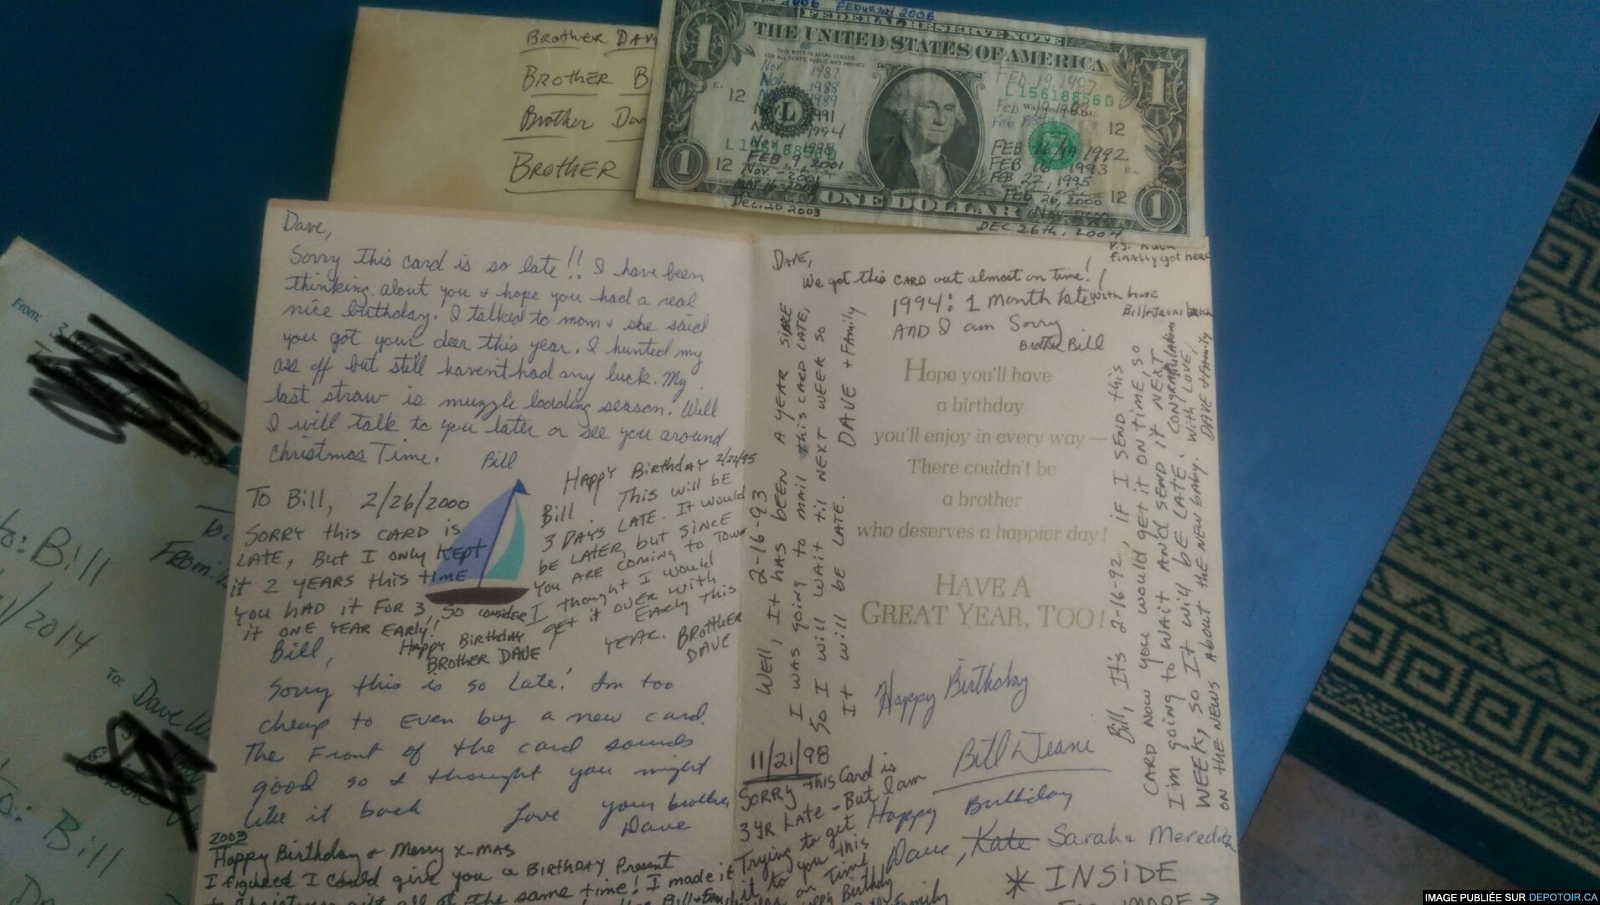 Brother Dav
Brother B
Brother Dav
Brother
2006 February 2006
FEDERAL RESERVE NOTE
THE UNITED STATES OF AMERICA
THIS NOTE IS LEGAL TENDER
FOR ALL DEBTS, PUBLIC AND PRIVATE
1
1
1
1
12
12
12
12
L
L15618856D
L15618856D
Nov. 1987
Nov. 1988
1989
1991
Nov 1994
Nov. 1998
FEB 9, 2001
Nov. - 2001
Dec. 20 2003
FEB 19, 1987
Feb
Feb
FEB 1992
FEB 16 1993
FEB 22, 1995
Feb 26, 2000
Nov. 2000
ONE DOLLAR
DEC 26th, 2004
From:
To:
From:
To: Bill
2014
To: Dave
To: Bill
Dave,
Sorry this card is so late!! I have been
thinking about you & hope you had a real
nice birthday. I talked to mom & she said
you got your deer this year. I hunted my
ass off but still haven't had any luck. My
last straw is muzzle loading season. Well
I will talk to you later or see you around
Christmas Time. Bill
To Bill, 2/26/2000
SORRY this CARD is
LATE, But I only KEPT
it 2 YEARS this time
You HAD it FOR 3, So consider
it ONE YEAR EARLY!
Happy Birthday
BROTHER DAVE
Happy Birthday 2/22/95
Bill. This will be
3 DAYS LATE. It would
be LATER, but SINCE
You ARE coming to Town
I thought I would
get it over with
Early this
YEAR. BROTHER
DAVE
Bill,
Sorry this is so Late! Im too
cheap to Even buy a new card.
The Front of the card sounds
good so I thought you might
like it back Love your brother
Dave
2003
Happy Birthday & Merry X-MAS
I figured I could give you a BIRTHDAY Present
the same time! I made it
DAVE,
We got this CARD out almost on time!
1994: 1 Month late with love
AND I am Sorry
Brother Bill
P.S.
Finally got here
Well, It HAS BEEN A YEAR SINCE 2-16-93
I WAS GOING to MAIL this CARD LATE,
So I will WAIT til NEXT WEEK SO
It will be LATE. DAVE + FAMILY
Hope you'll have
a birthday
you'll enjoy in every way —
There couldn't be
a brother
who deserves a happier day!
HAVE A
GREAT YEAR, TOO!
Happy Birthday
Bill & Jeani
Bill, It's 2-16-92, if I SEND this
CARD NOW you would get it ON time, so
I'm going to WAIT AND SEND it NEXT
WEEK, so It will be LATE. CONGRATULATIONS
ON the NEWS About the NEW baby. With LOVE,
DAVE + FAMILY
11/21/98
SORRY this Card is
3 YR LATE - But I am
Trying to get
it to you this
on Time
Happy Birthday
Happy Birthday
Dave, Kate Sarah & Meredith
* INSIDE
IMAGE PUBLIÉE SUR DEPOTOIR.CA